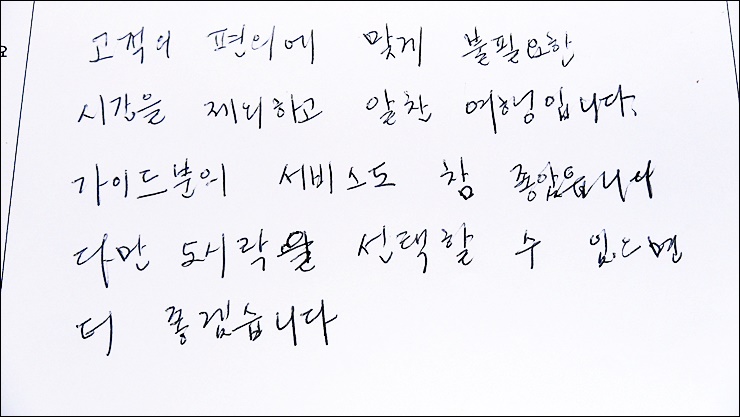 고객의 편의에 맞게 불필요한
시간을 제외하고 알찬 여행입니다.
가이드분의 서비스도 참 좋았습니다
다만 도시락을 선택할 수 있으면
더 좋겠습니다